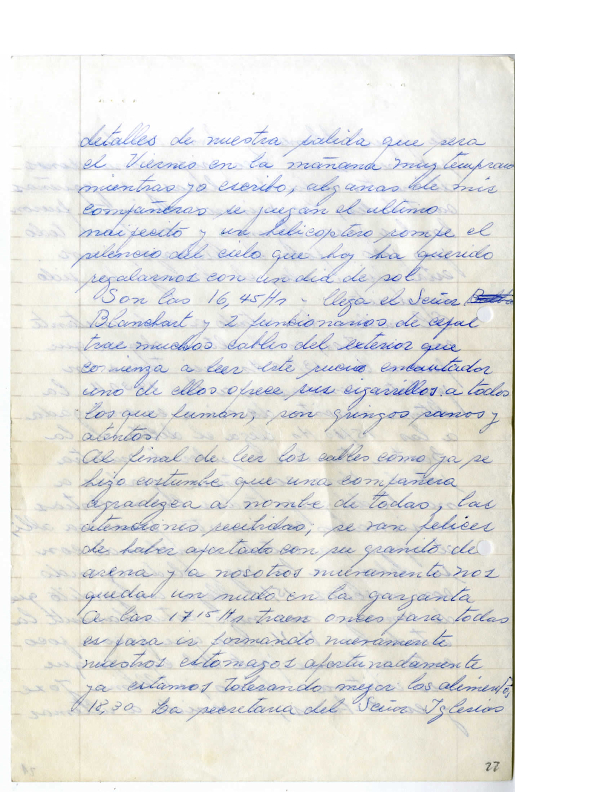 detalles de nuestra salida que sera
el Viernes en la mañana muy temprano
mientras yo escribo, algunas de mis
compañeras se juegan el ultimo
naipecito y un helicoptero rompe el
silencio del cielo que hoy ha querido
regalarnos con un dia de sol.
Son las 16,45 Hs - llega el Señor
Blanchart y 2 funcionarios de cepal
trae muchos cables del exterior que
comienza a leer este sueco encantador
uno de ellos ofrece sus cigarrillos a todos
los que fuman, son gringos sanos y
atentos.
Al final de leer los cables como ya se
hizo costumbre que una compañera
agradezca a nombre de todas, las
atenciones recibidas; se van felices
de haber aportado con su granito de
arena y a nosotros nuevamente nos
queda un nudo en la garganta
A las 17 15 Hs traen onces para todas
es para ir formando nuevamente
nuestros estomagos afortunadamente
ya estamos tolerando mejor los alimentos,
18,30 La secretaria del Señor Iglesias
22